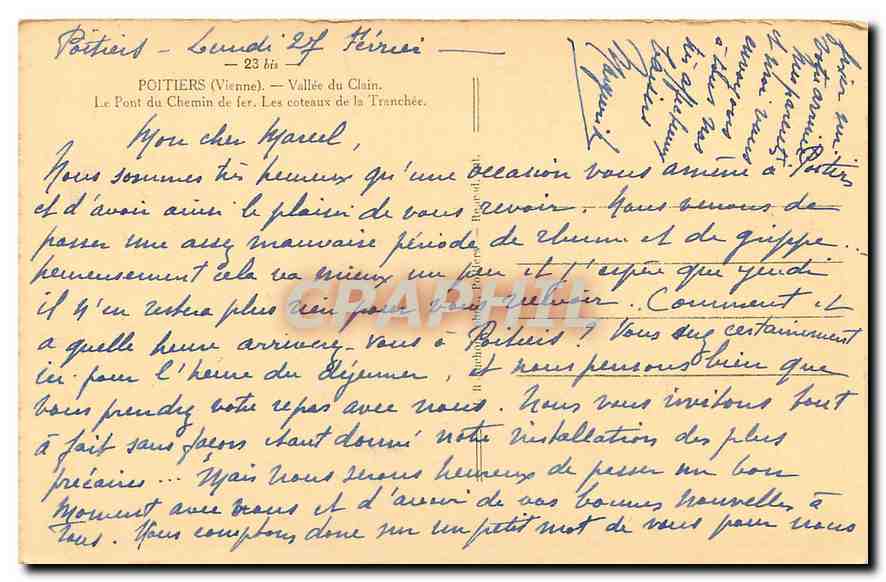 Poitiers - Lundi 27 Février
- 23 bis -
POITIERS (Vienne). — Vallée du Clain.
Le Pont du Chemin de fer. Les coteaux de la Tranchée.
Mon cher Marcel,
Nous sommes très heureux qu'une occasion vous amène à Poitiers
et d'avoir ainsi le plaisir de vous revoir. Nous venons de
passer une assez mauvaise période de rhume et de grippe...
heureusement cela va mieux un peu et j'espère que jeudi
il n'en restera plus rien pour vous recevoir.. Comment et
à quelle heure arriverez-vous à Poitiers ? Vous serez certainement
ici pour l'heure du déjeuner, et nous pensons bien que
vous prendrez votre repas avec nous. Nous vous invitons tout
à fait sans façons étant donné notre installation des plus
précaires ... Mais nous serons heureux de passer un bon
moment avec vous et d'avoir de vos bonnes nouvelles à
Tous. Nous comptons donc sur un petit mot de vous pour nous
votre arrivée
nos parents
et moi vous
envoyons
à tous nos
très affectueux
baisers
CPARAMA